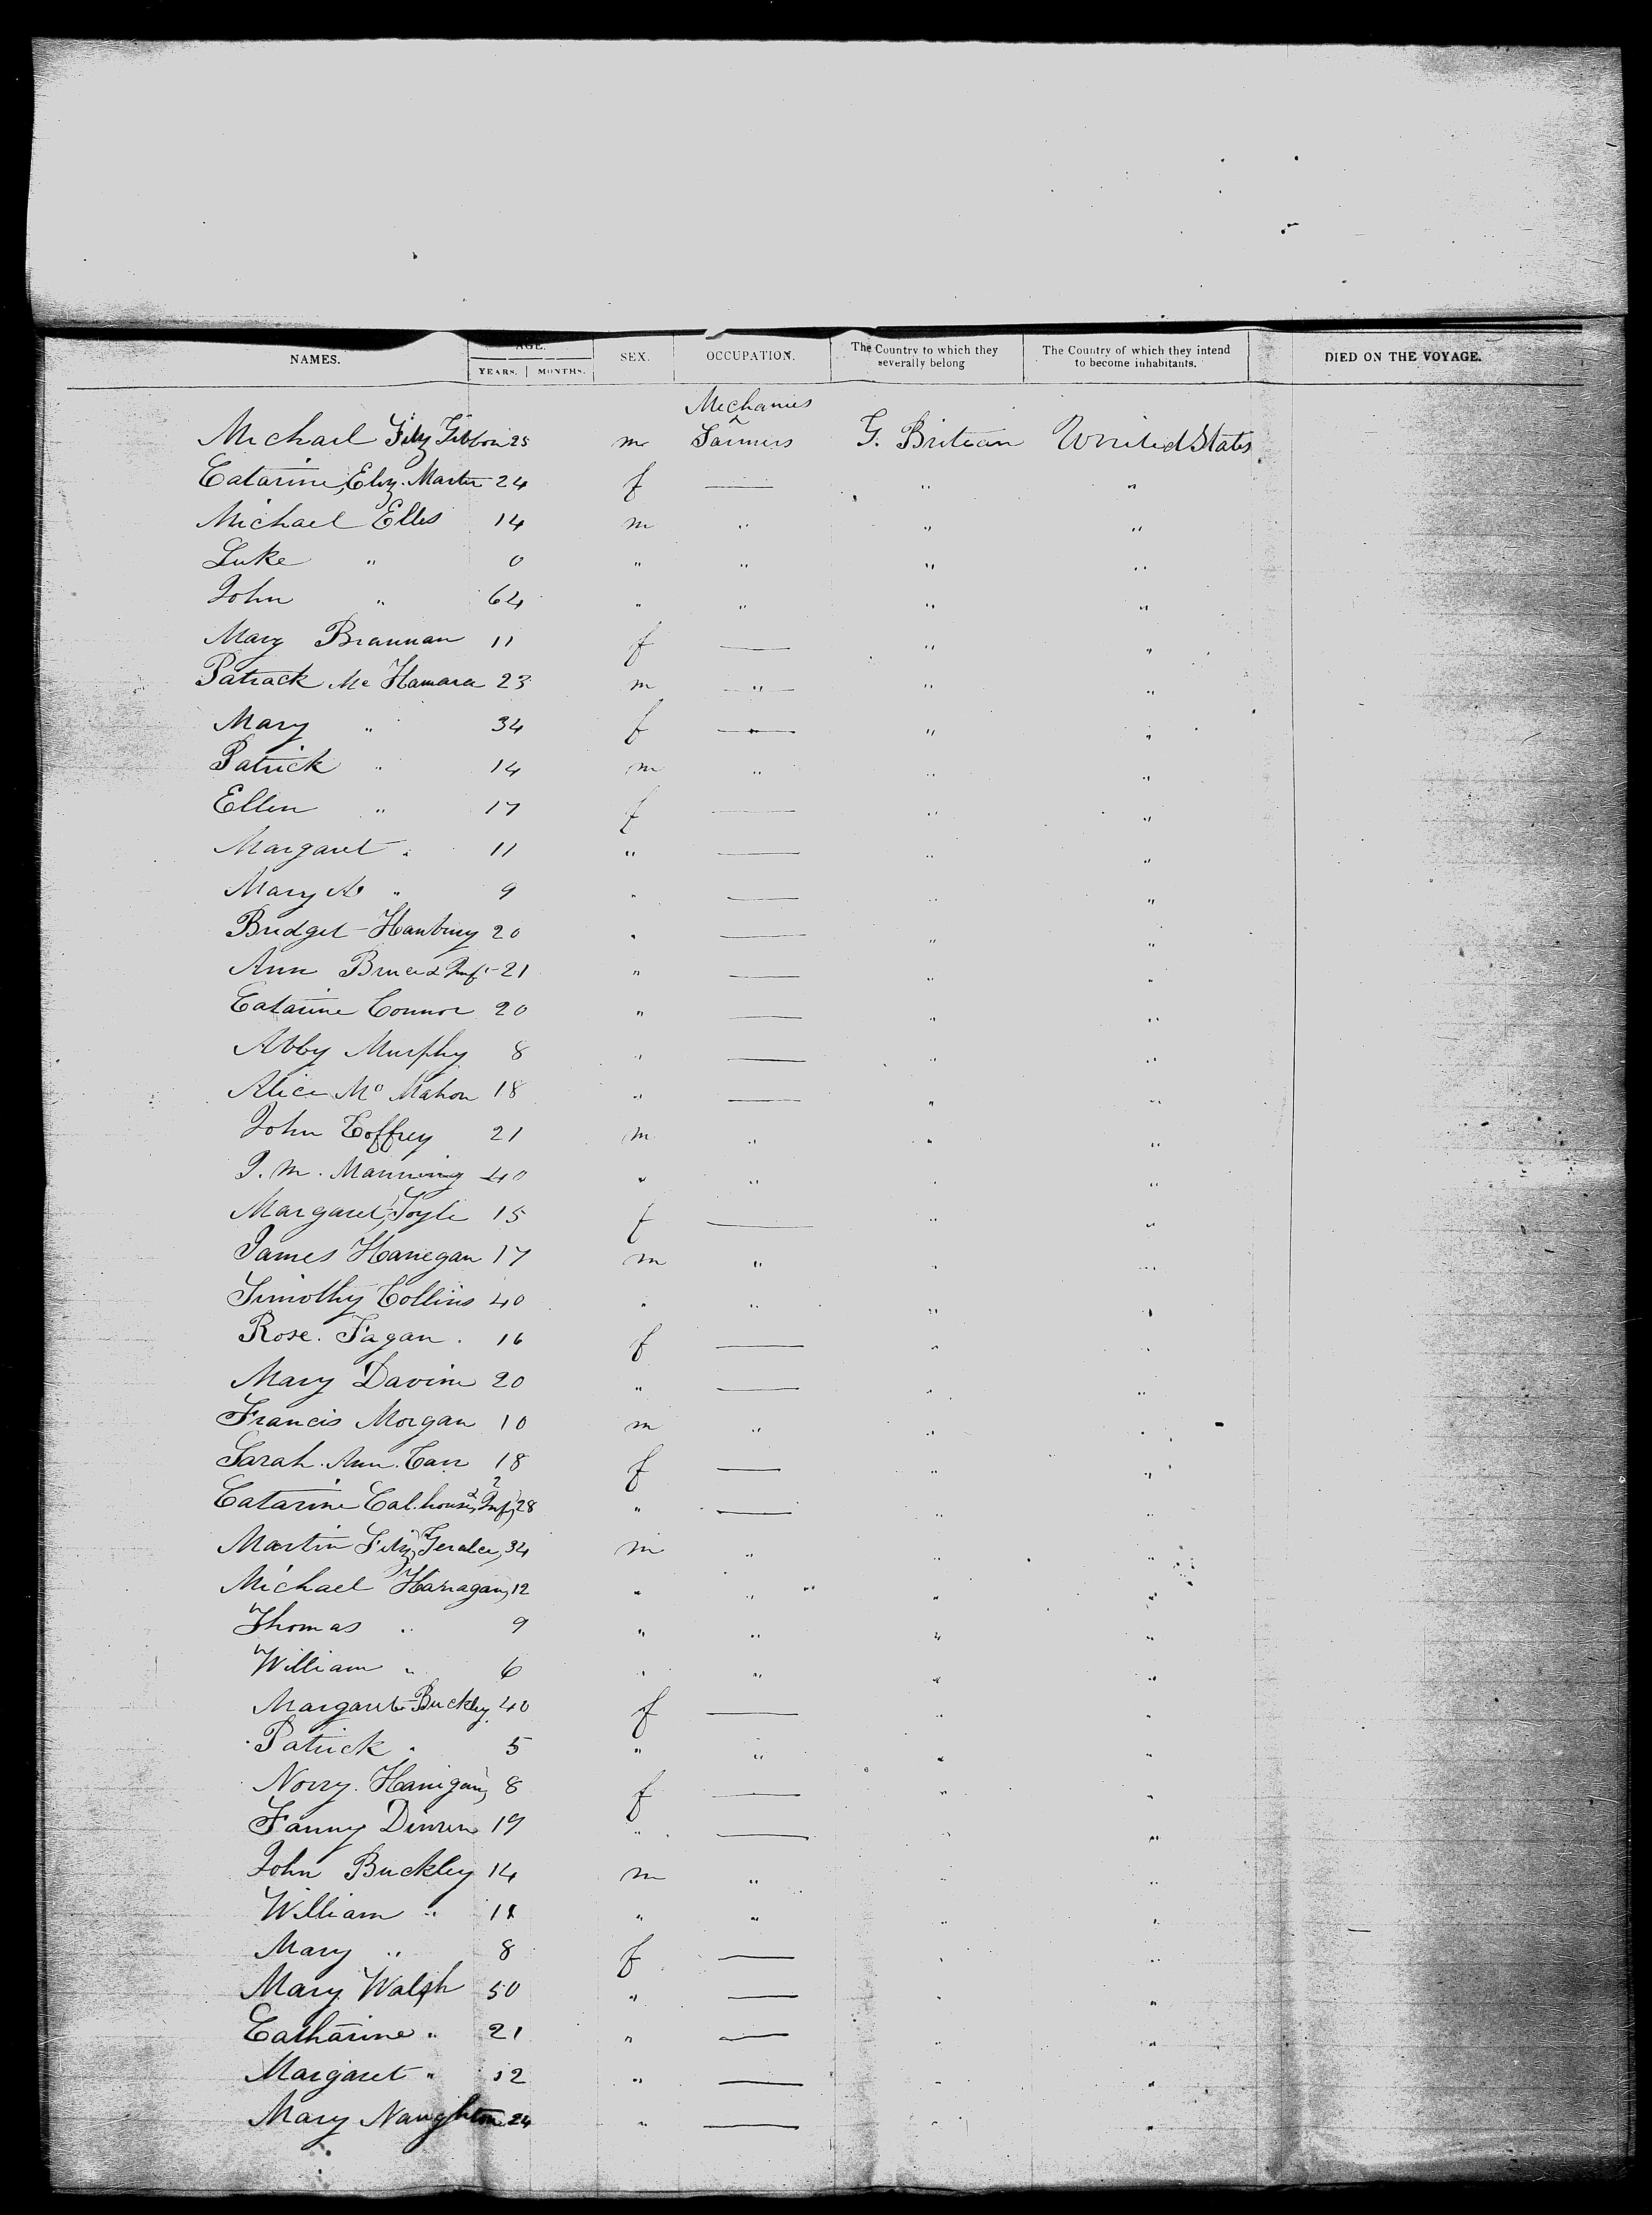 NAMES. AGE. SEX. OCCUPATION. The Country to which they severally belong The Country of which they intend to become inhabitants. DIED ON THE VOYAGE.
YEARS. MONTHS.
Mechanics
Michael Fitz Gibbon 25 m Farmers G. Britean United States
Catarine, Eliz. Martin 24 f — " "
Michael Elles 14 m " " "
Luke " 0 " " " "
John " 64 " " " "
Mary Brannan 11 f — " "
Patrack Mc Hamara 23 m " " "
Mary " 34 f — " "
Patrick " 14 m " " "
Ellen " 17 f — " "
Margaret " 11 " — " "
Mary A " 9 " — " "
Bridget Hanbury 20 " — " "
Ann Bruce & Inf. 21 " — " "
Catarine Connor 20 " — " "
Abby Murphy 8 " — " "
Alice Mc Mahon 18 " — " "
John Coffrey 21 m " " "
J. M. Manning 40 " " " "
Margaret Joyle 15 f — " "
James Hanegan 17 m " " "
Timothy Collins 40 " " " "
Rose. Fagan. 16 f — " "
Mary Davine 20 " — " "
Francis Morgan 10 m " " "
Sarah. Ann. Carr 18 f — " "
Catarine Cal.houn & 2 Inf, 28 " — " "
Martin Fitz, Geralee, 34 m " " "
Michael Harragan, 12 " " " "
Thomas " 9 " " " "
William " 6 " " " "
Margaret Buckley 40 f — " "
Patrick " 5 " " " "
Norry. Hanigan, 8 f — " "
Fanny 19 " — " "
John Buckley 14 m " " "
William " " " " "
Mary " 8 f — " "
Mary Walsh 50 " — " "
Catharine " 21 " — " "
Margaret " 12 " — " "
Mary Naughton 24 " — " "